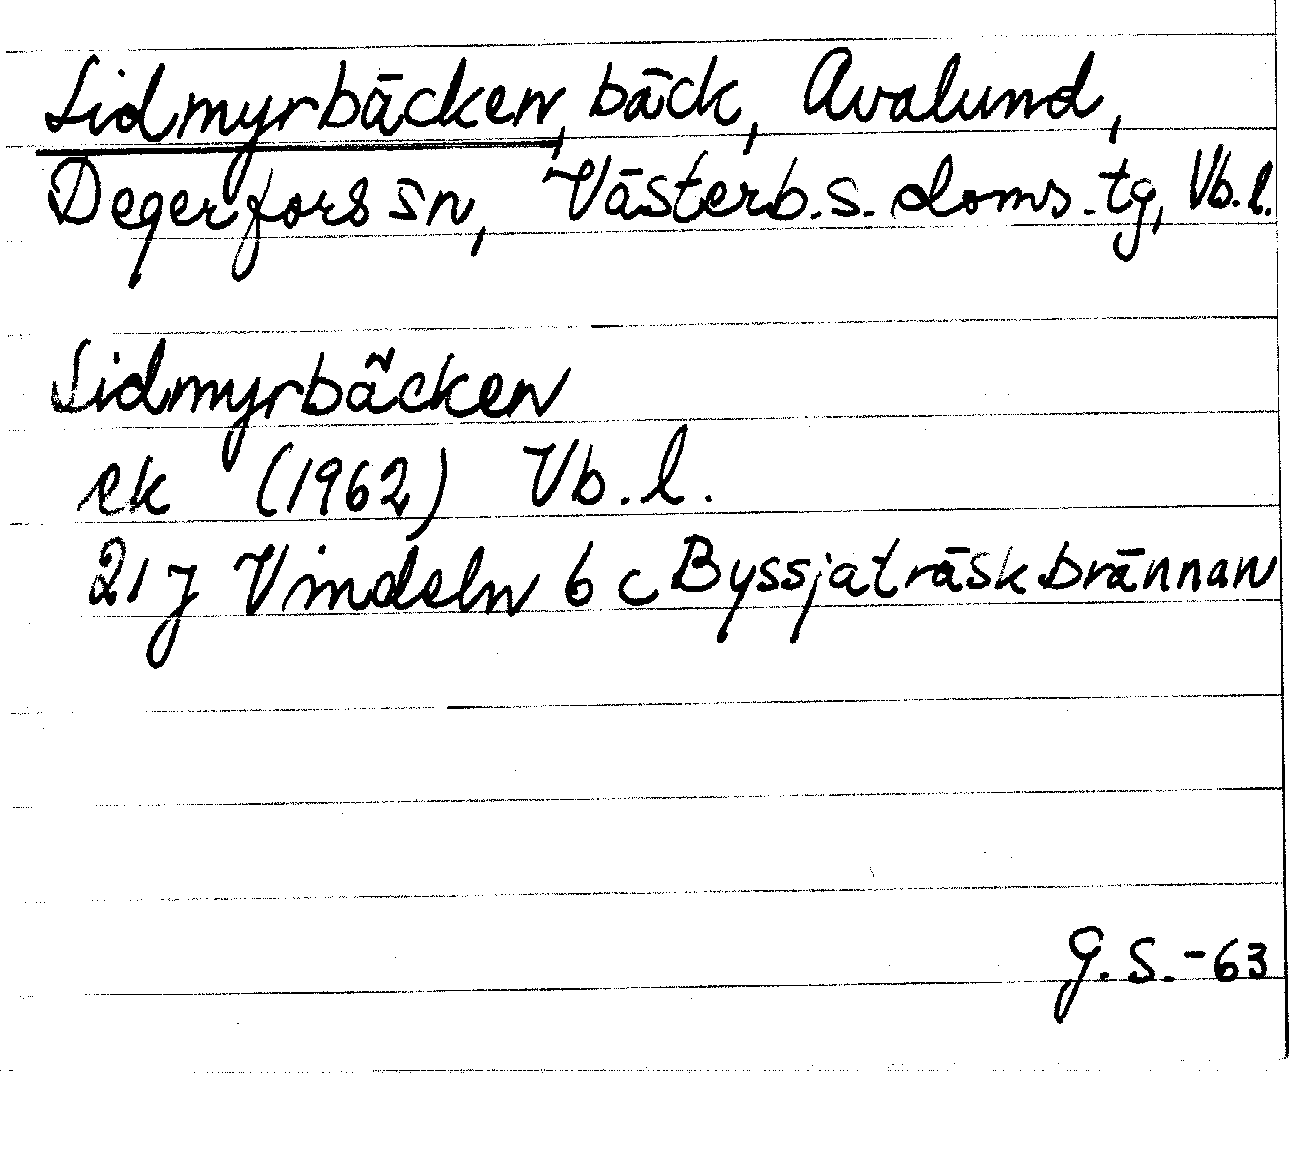 Lidmyrbäcken, bäck, Avalund,
Degerfors sn, Västerb. s. doms. tg, Vb. l.
Lidmyrbäcken
ek (1962) Vb. l.
21 J Vindeln 6 c Byssjaträskbrännan
G. S. -63